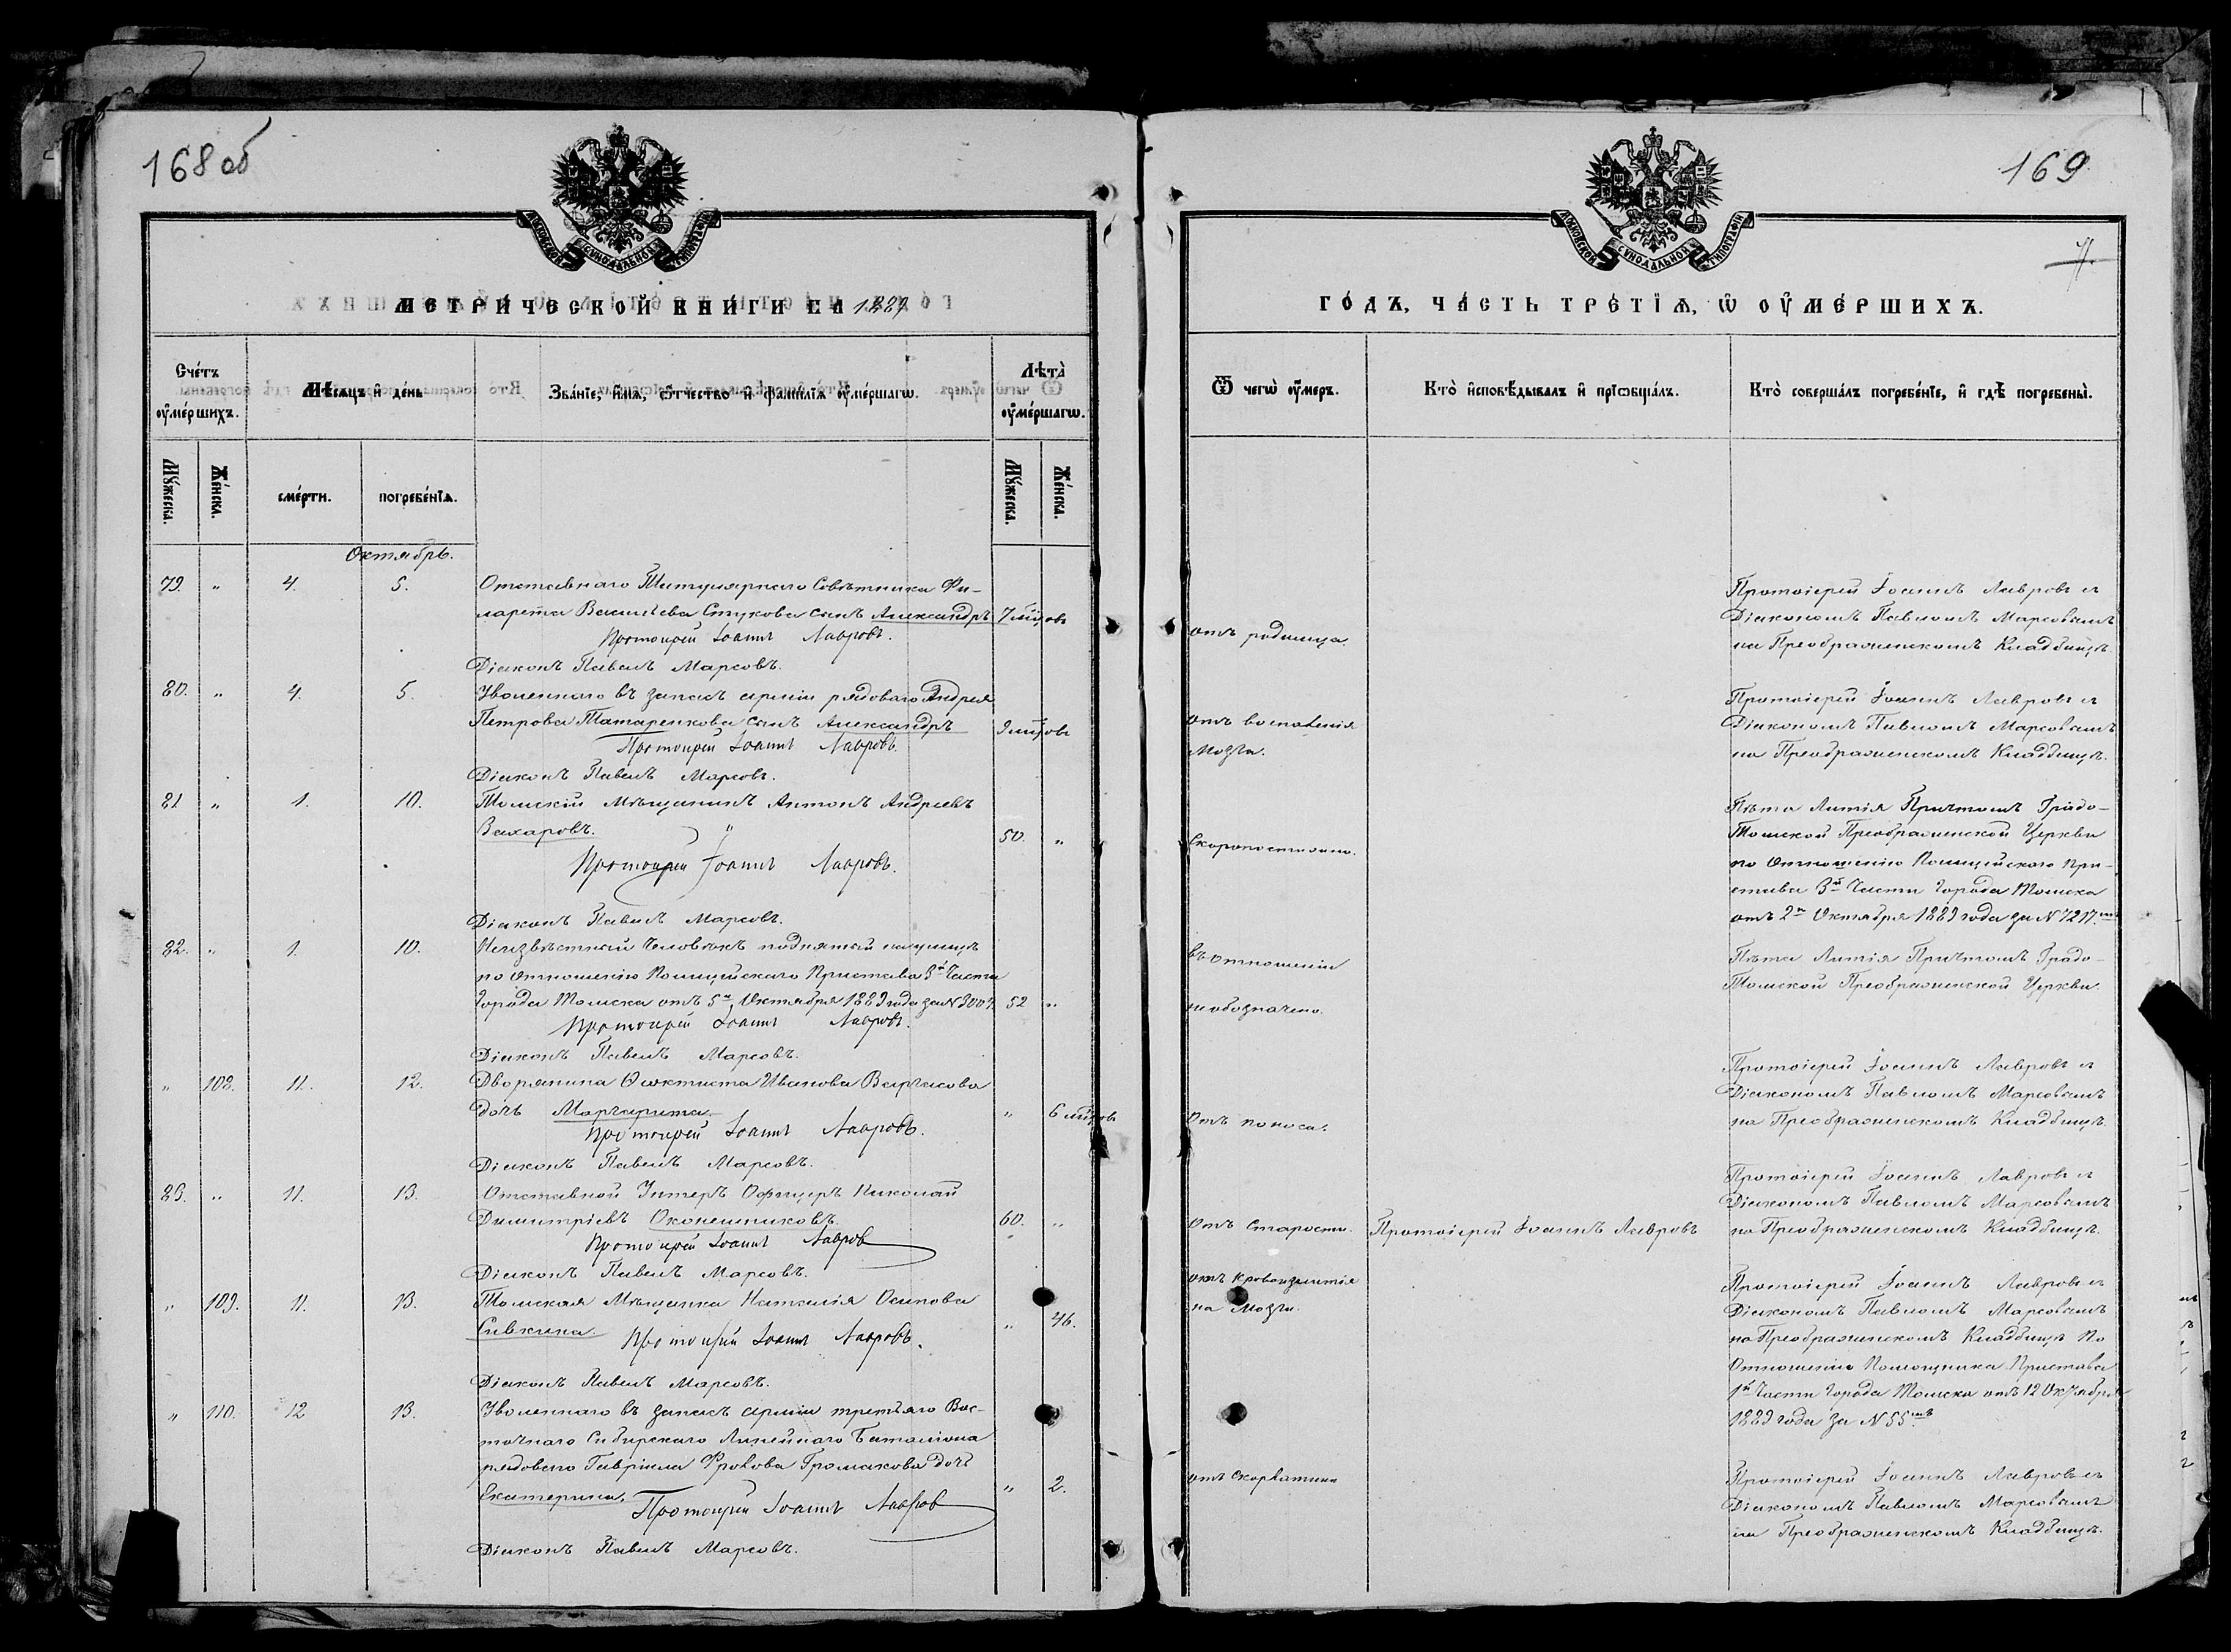 168 об
МОСКОВСКОЙ СѴНОДАЛЬНОЙ ТИПОГРАФІИ
МЕТРИ́ЧЕСКОЙ КНИ́ГИ НА 1889
Сче́тъ ᲂу҆ме́ршихъ.
Мѣ́сяцъ и҆ де́нь
Зва́нїе, и҆́мѧ, ѻ҆́тчество и҆ фамѵ́лїѧ ᲂу҆ме́ршагѡ.
Лѣта̀ ᲂу҆ме́ршагѡ.
Мꙋ́жеска.
Же́нска.
сме́рти.
погребе́нїѧ.
Мꙋ́жеска.
Же́нска.
Октябрь.
79. „ 4. 5. Отставнаго Титулярнаго Совѣтника Фи-
ларета Васильева Стукова сынъ Александръ 7 мѣсяцовъ
Протоіерей Іоаннъ Лавровъ.
Діаконъ Павелъ Марсовъ.
80. „ 4. 5. Уволеннаго въ запасъ арміи рядоваго Андрея
Петрова Татаренкова сынъ Александръ 9 мѣсяцовъ
Протоіерей Іоаннъ Лавровъ.
Діаконъ Павелъ Марсовъ.
81 „ 1. 10. Томскій Мѣщанинъ Антонъ Андреевъ
Захаровъ. „ 50. „
Протоіерей Іоаннъ Лавровъ.
Діаконъ Павелъ Марсовъ.
82. „ 1. 10. Неизвѣстный человѣкъ поднятый на улицѣ
по Отношенію Полицейскаго Пристава 3й Части
Города Томска отъ 5го Октября 1889 года за № 52 „
Протоіерей Іоаннъ Лавровъ.
Діаконъ Павелъ Марсовъ.
„ 108. 11. 12. Дворянина Ѳеоктиста Иванова
дочь Маргарита. „ 6 мѣсяцовъ
Протоіерей Іоаннъ Лавровъ.
Діаконъ Павелъ Марсовъ.
83. „ 11. 13. Отставной Унтеръ Офицеръ Николай
Димитріевъ Оконешниковъ. 60. „
Протоіерей Іоаннъ Лавров
Діаконъ Павелъ Марсовъ.
„ 109. 11. 13. Томская Мѣщанка Наталія Осипова
Сивкина. „ 46.
Протоіерей Іоаннъ Лавровъ.
Діаконъ Павелъ Марсовъ.
„ 110. 12 13. Уволеннаго въ запасъ арміи третьяго Вос-
точнаго Сибирскаго Линейнаго Баталіона
рядоваго Гавріила Фролова Громакова дочь
Екатерина. „ 2.
Протоіерей Іоаннъ Лавров
Діаконъ Павелъ Марсовъ.
169.
МОСКОВСКОЙ СѴНОДАЛЬНОЙ ТИПОГРАФІИ
ГО́ДЪ, ЧА́СТЬ ТРЕ́ТЇѦ, Ѡ҆ ОУ҆МЕ́РШИХЪ.
Ѿ чегѡ̀ ᲂу҆́меръ.
Кто̀ и҆сповѣ́дывалъ и҆ прїѡбща́лъ.
Кто̀ соверша́лъ погребе́нїе, и҆ гдѣ̀ погребены̀.
отъ родимца.
Протоіерей Іоаннъ Лавровъ съ
Діакономъ Павломъ Марсовымъ
на Преображенскомъ Кладбищѣ.
отъ воспаленія
мозга.
Протоіерей Іоаннъ Лавровъ съ
Діакономъ Павломъ Марсовымъ
на Преображенскомъ Кладбищѣ.
Скоропостижно.
Пѣта Литія Причтомъ Градо-
Томской Преображенской Церкви
по Отношенію Полицейскаго При-
става 3й Части Города Томска
отъ 2го Октября 1889 года за № 7217.мъ
въ отношеніи
не обозначено.
Пѣта Литія Причтомъ Градо-
Томской Преображенской Церкви.
Отъ поноса.
Протоіерей Іоаннъ Лавровъ съ
Діакономъ Павломъ Марсовымъ
на Преображенскомъ Кладбищѣ.
Отъ Старости. Протоіерей Іоаннъ Лавровъ
Протоіерей Іоаннъ Лавровъ съ
Діакономъ Павломъ Марсовымъ
на Преображенскомъ Кладбищѣ.
отъ кровоизлитія
на мозги.
Протоіерей Іоаннъ Лавровъ съ
Діакономъ Павломъ Марсовымъ
на Преображенскомъ Кладбищѣ по
Отношенію Помощника Пристава
1й Части Города Томска отъ 12 Октября
1889 года за № 55.мъ
отъ скорлатины
Протоіерей Іоаннъ Лавровъ съ
Діакономъ Павломъ Марсовымъ
на Преображенскомъ Кладбищѣ.